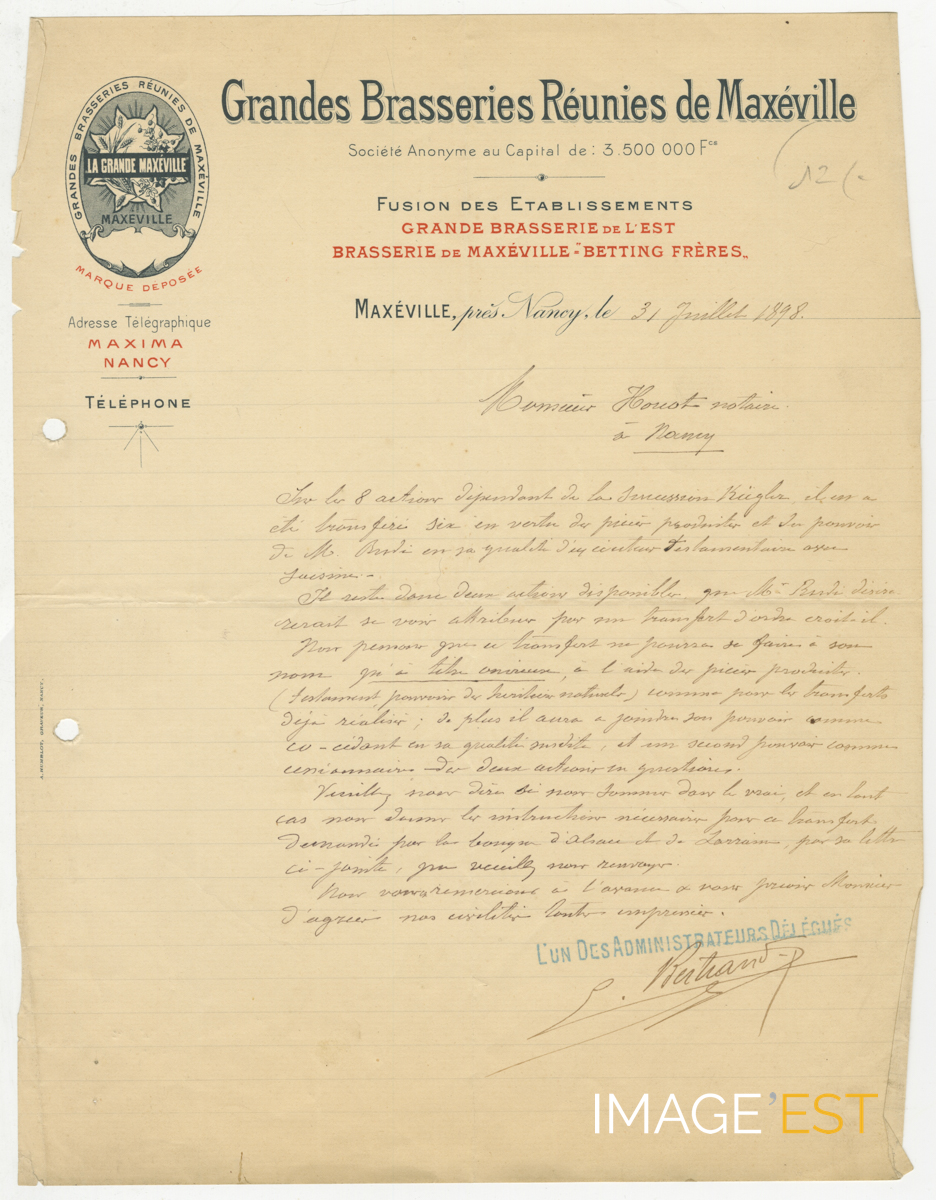 Grandes Brasseries Réunies de Maxéville
Société Anonyme au Capital de : 3.500 000 Fcs
12
Fusion des Etablissements
GRANDE BRASSERIE DE L'EST
BRASSERIE DE MAXÉVILLE - "BETTING FRÈRES"
GRANDES BRASSERIES RÉUNIES DE MAXÉVILLE
LA GRANDE MAXÉVILLE
MAXÉVILLE
MARQUE DÉPOSÉE
Adresse Télégraphique
MAXIMA
NANCY
TÉLÉPHONE
MAXÉVILLE, près Nancy, le 31 Juillet 1898.
Monsieur Houot notaire.
à Nancy
Sur les 8 actions dépendant de la succession Kiegler, il en a
été transféré six en vertu des pièces produites et du pouvoir
de M. en sa qualité d'exécuteur testamentaire avec
saisine.
Il reste donc deux actions disponibles que Mr désire
rerait se voir attribuer par un transfert d'ordre croit il.
Nous pensons que ce transfert ne pourra se faire à son
nom qu'à titre onéreux, à l'aide des pièces produites.
(testament, pouvoirs des héritiers naturels) comme pour les transferts
déjà réalisés ; de plus il aura à joindre son pouvoir comme
co-cédant en sa qualité susdite, et un second pouvoir comme
cessionnaire des deux actions en questions.
Veuillez nous dire si nous sommes dans le vrai, et en tout
cas nous donner les instructions nécessaires pour ce transfert
demandé par la banque d'Alsace et de Lorraine, par sa lettre
ci-jointe, que veuillez nous renvoyer.
Nous vous remercions à l'avance & vous prions Monsieur
d'agréer nos civilités empressées.
L'UN DES ADMINISTRATEURS DÉLÉGUÉS
Bertrand
IMAGE'EST